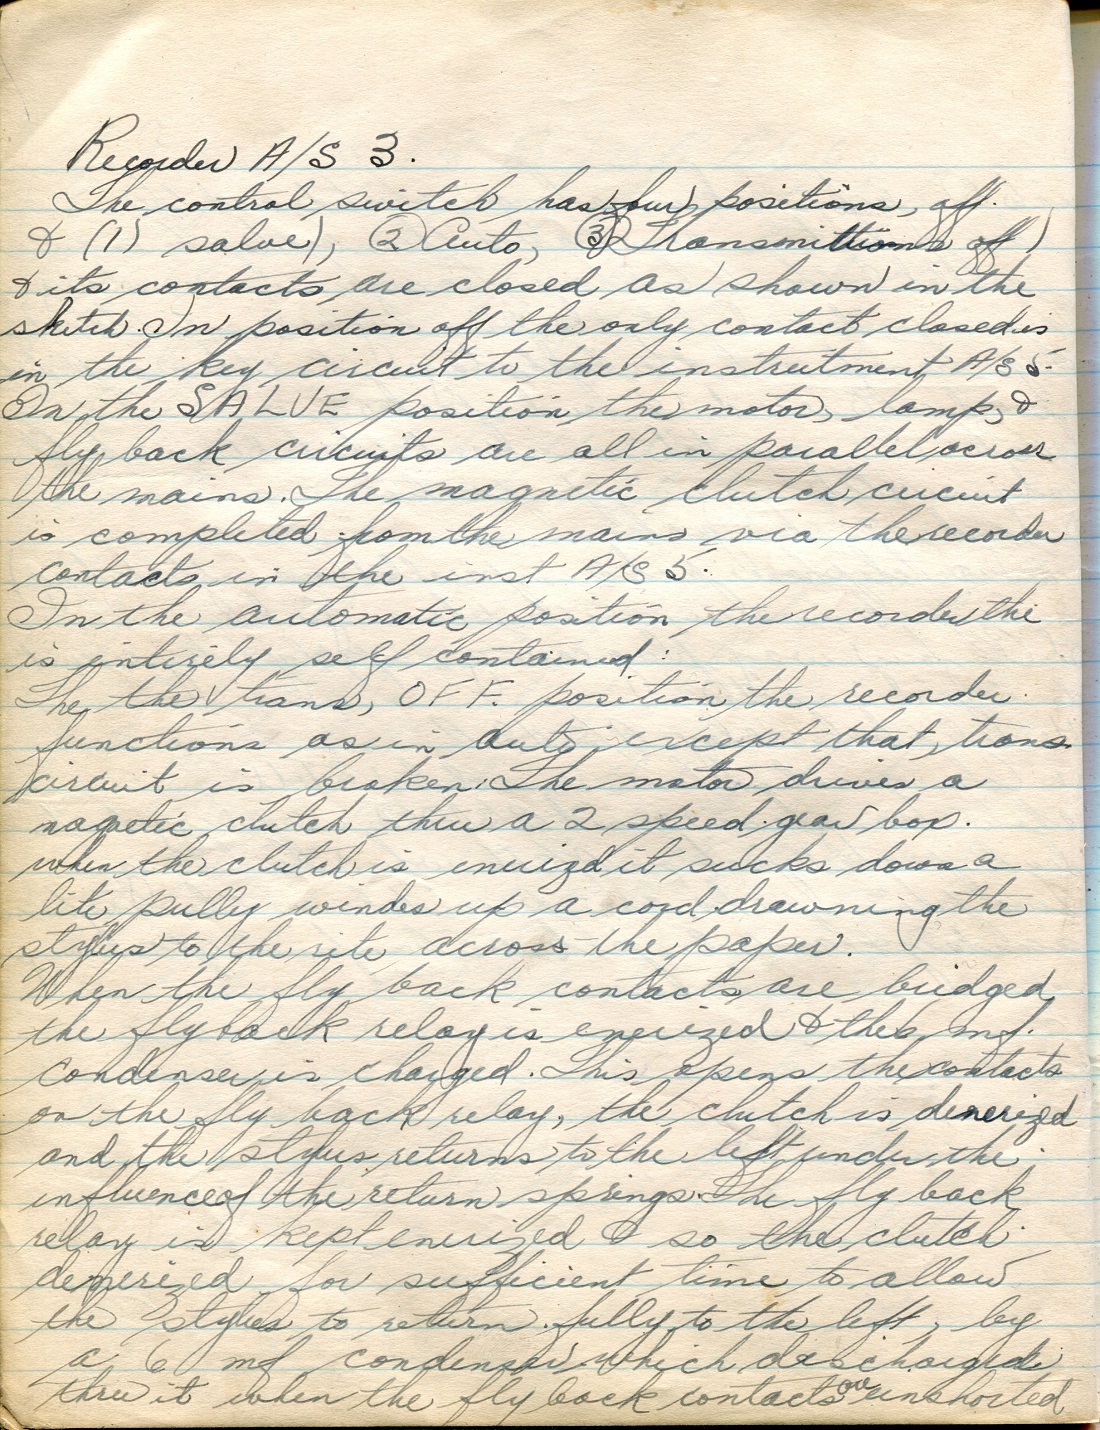 Recorder A/S 3.
The control switch has four positions, off.
& (1) salve), (2) Auto, (3) Transmittions off)
& its contacts are closed as shown in the
sketch. In position off the only contact closed is
in the key circuit to the instrutment A/S 5.
In the SALVE position the motor, lamp, &
fly back circuits are all in parallel across
the mains. The magnetic clutch circuit
is completed from the mains via the recorder
contacts in the inst A/S 5.
In the automatic position the recorder the
is intirely self contained:
The the trans, OFF. position the recorder
functions as in auto, except that, trans
circuit is broken. The motor drives a
magnetic clutch thru a 2 speed gear box.
when the clutch is enrizd it sucks down a
lite pully windes up a cord drawning the
stylus to the rite across the paper.
When the fly back contacts are bridged
the fly back relay is enerized & the 6 mf.
condenser is charged. This opens the contacts
on the fly back relay, the clutch is denerized
and the stylus returns to the left under the
influence of the return springs. The fly back
relay is kept enerized & so the clutch
denerized for sufficient time to allow
the stylus to return fully to the left, by
a 6 mf condenser which descharged
thru it when the fly back contacts are unshorted